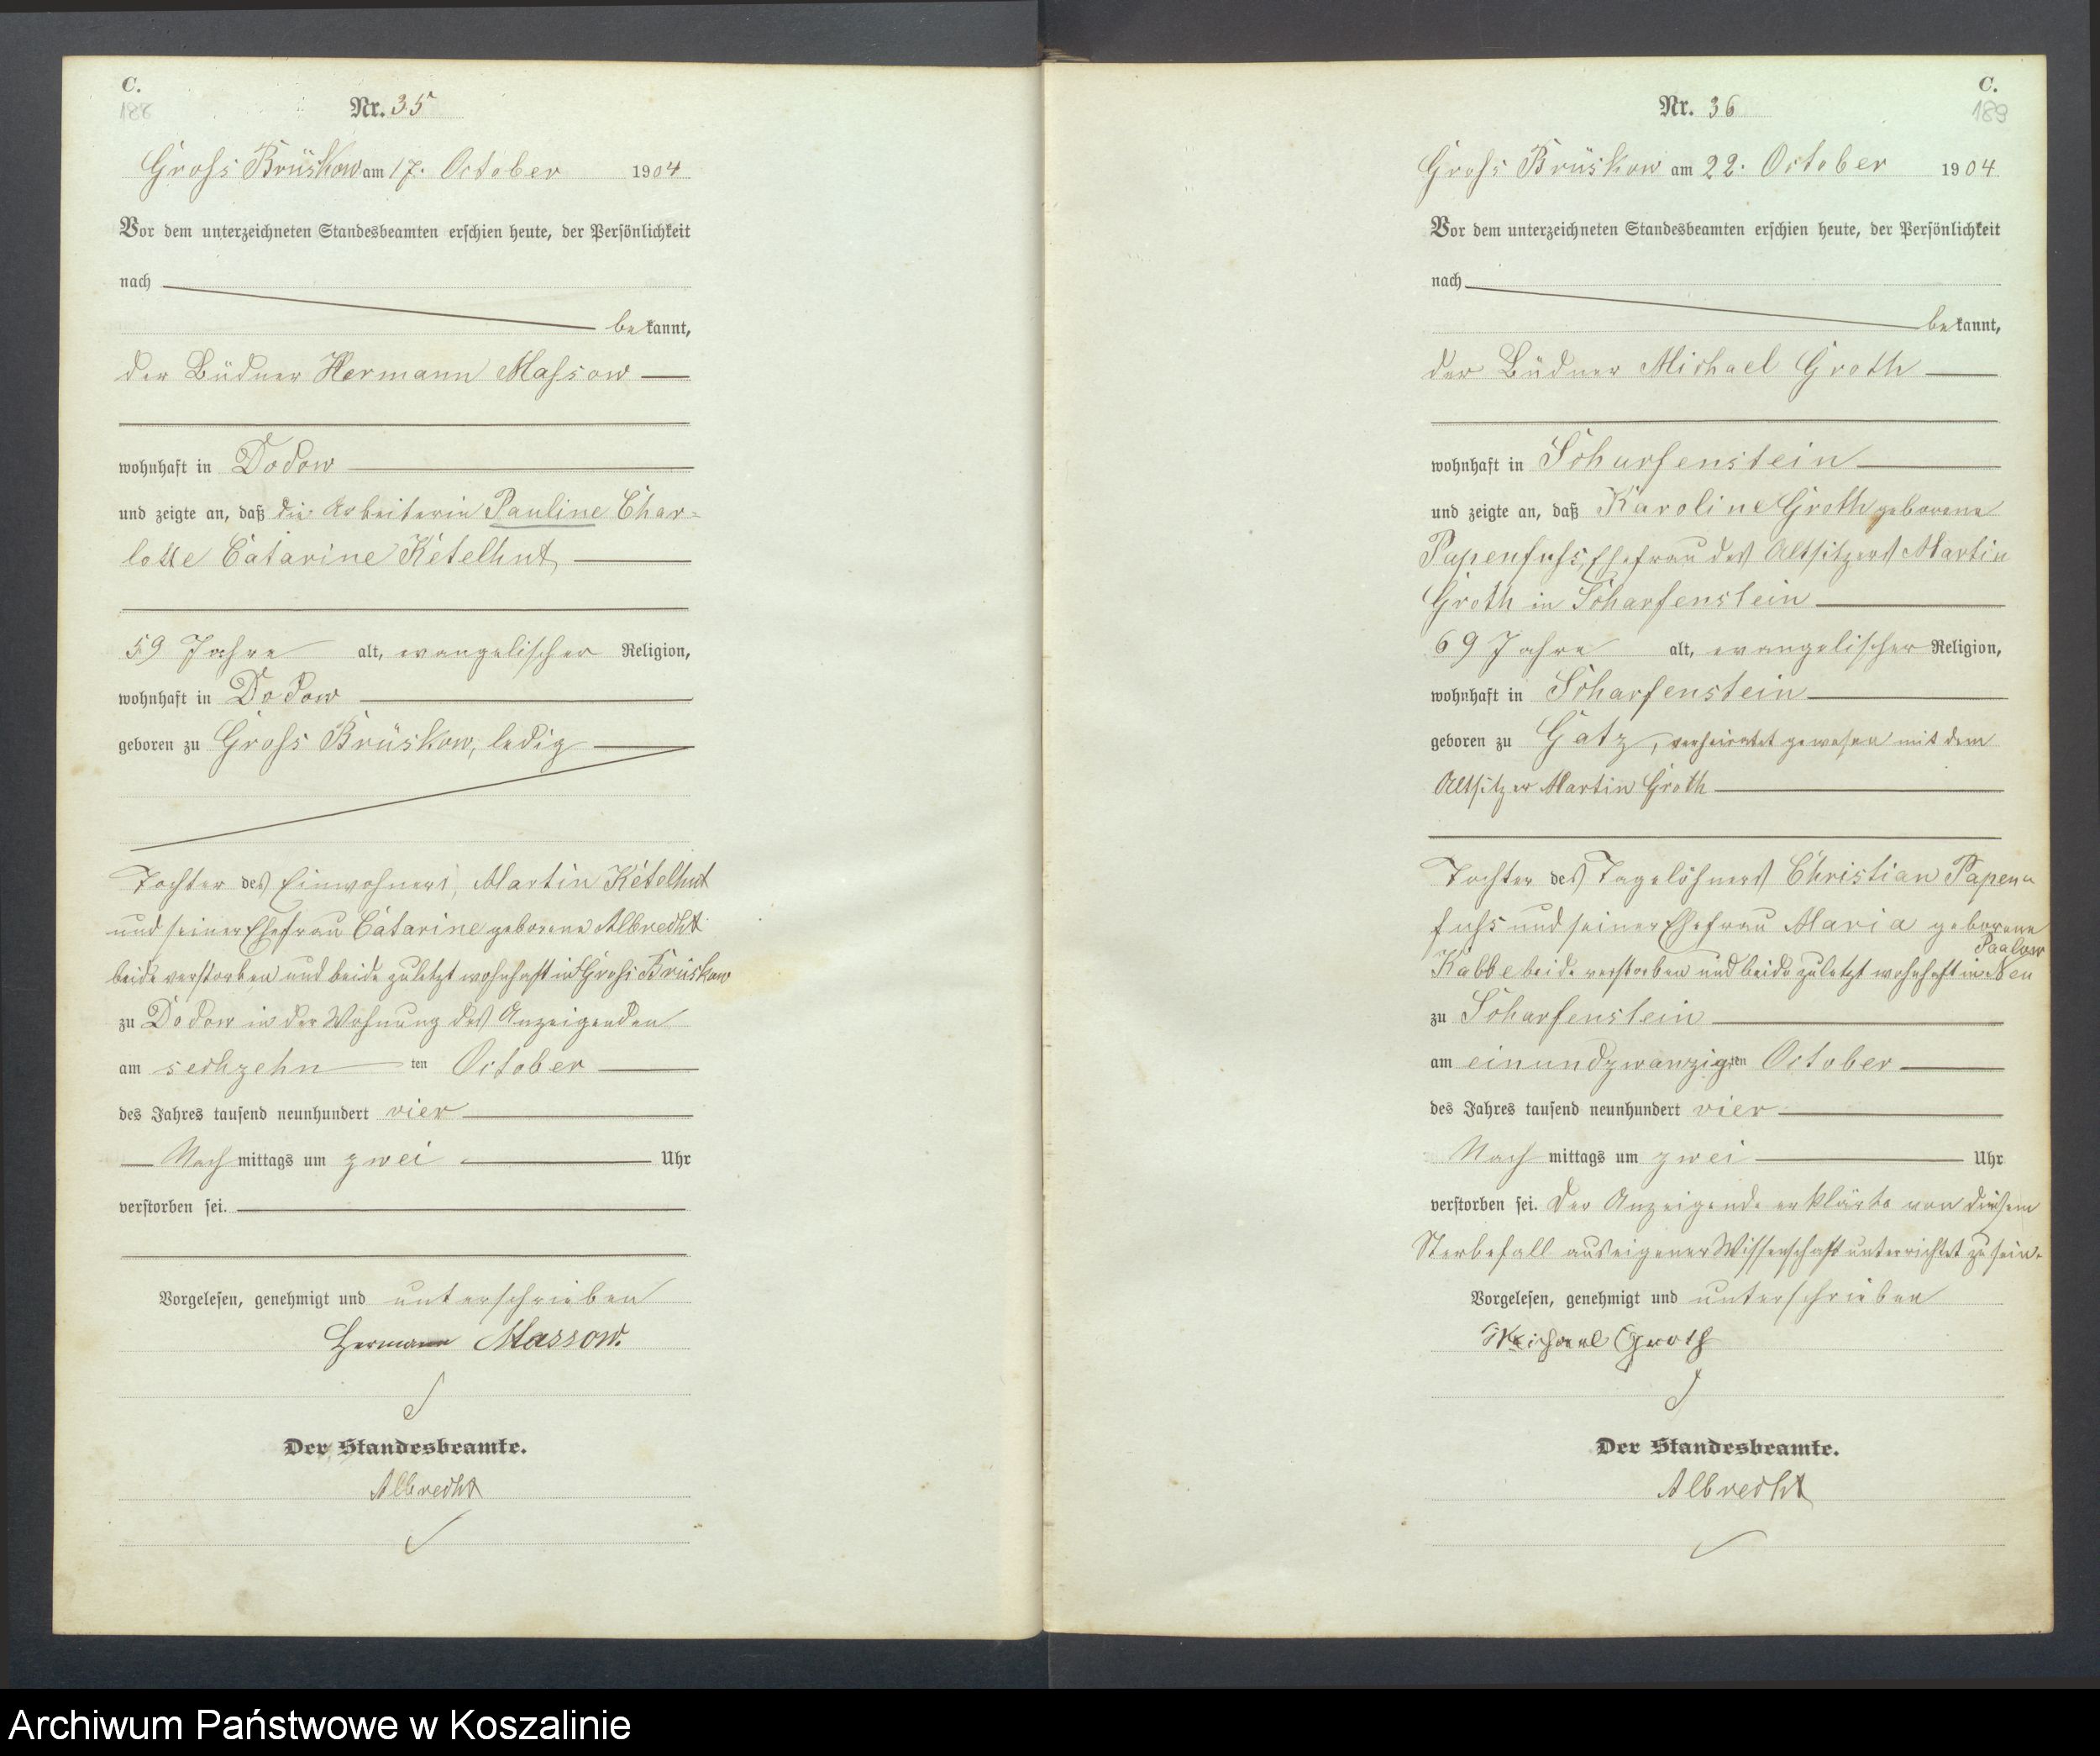 C.
188
Nr. 35
Gross Brüskow am 17. October 1904
Vor dem unterzeichneten Standesbeamten erschien heute, der Persönlichkeit
nach
bekannt,
der Büdner Hermann Massow
wohnhaft in Dodow
und zeigte an, daß die Arbeiterin Pauline Char-
lotte Catarine Ketelhut
59 Jahre alt, evangelischer Religion,
wohnhaft in Dodow
geboren zu Gross Brüskow, ledig
Tochter des Einwohners, Martin Ketelhut
und seiner Ehefrau Catarine geborene Albrecht
beide verstorben und beide zuletzt wohnhaft in Gross Brüskow
zu Dodow in der Wohnung des Anzeigenden
am sechzehn ten October
des Jahres tausend neunhundert vier
Nach mittags um zwei Uhr
verstorben sei.
Vorgelesen, genehmigt und unterschrieben
Hermann Massow.
Der Standesbeamte.
Albrecht
C.
189
Nr. 36
Gross Brüskow am 22. October 1904
Vor dem unterzeichneten Standesbeamten erschien heute, der Persönlichkeit
nach
bekannt,
der Büdner Michael Groth
wohnhaft in Scharfenstein
und zeigte an, daß Karoline Groth geborene
Papenfuss, Ehefrau des Altsitzers Martin
Groth in Scharfenstein
69 Jahre alt, evangelischer Religion,
wohnhaft in Scharfenstein
geboren zu Gatz, verheiratet gewesen mit dem
Altsitzer Martin Groth
Tochter des Tagelöhners Christian Papen-
fuss und seiner Ehefrau Maria geborene
Paalow
Kabbe beide verstorben und beide zuletzt wohnhaft in Neu
zu Scharfenstein
am einundzwanzigsten October
des Jahres tausend neunhundert vier
Nach mittags um zwei Uhr
verstorben sei. Der Anzeigende erklärte von diesem
Sterbefall aus eigener Wissenschaft unterrichtet zu sein.
Vorgelesen, genehmigt und unterschrieben
Michael Groth
Der Standesbeamte.
Albrecht
Archiwum Państwowe w Koszalinie